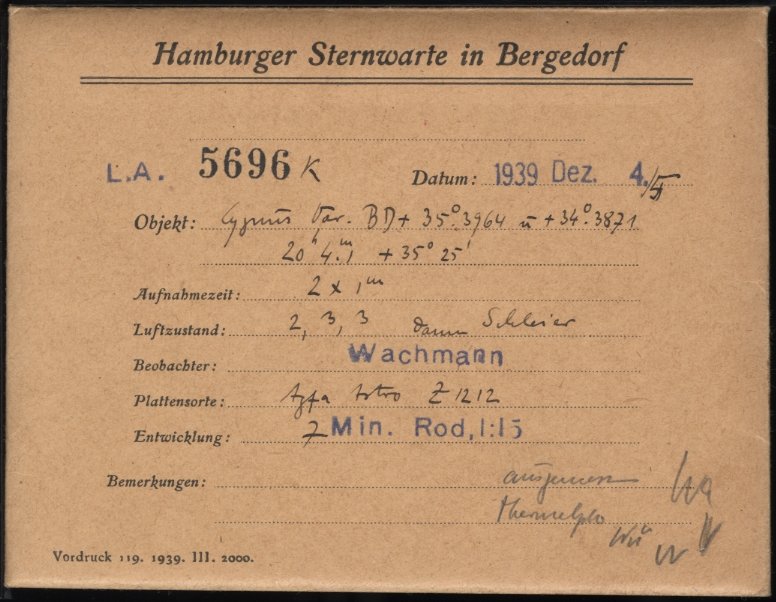 Hamburger Sternwarte in Bergedorf
L.A. 5696 K Datum: 1939 Dez. 4./5
Objekt: Cygnus Var. BD+ 35°.3964 u +34°.3871
20ʰ 4.ᵐ1 +35° 25'
Aufnahmezeit: 2 x 1ᵐ
Luftzustand: 2, 3, 3 dann Schleier
Beobachter: Wachmann
Plattensorte: Agfa Astro Z 1212
Entwicklung: 7 Min. Rod, 1:15
Bemerkungen: ausgemessen Wa
Vordruck 119. 1939. III. 2000.